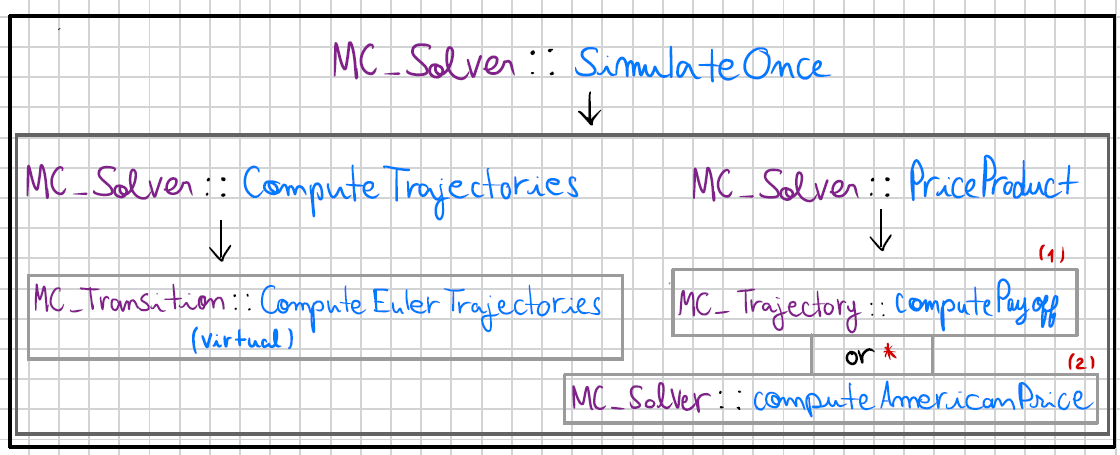 MC_Solver :: SimulateOnce
↓
MC_Solver :: ComputeTrajectories
↓
MC_Transition :: ComputeEulerTrajectories
(Virtual)
MC_Solver :: PriceProduct
↓
(1)
MC_Trajectory :: computePayoff
or *
(2)
MC_Solver :: computeAmericanPrice